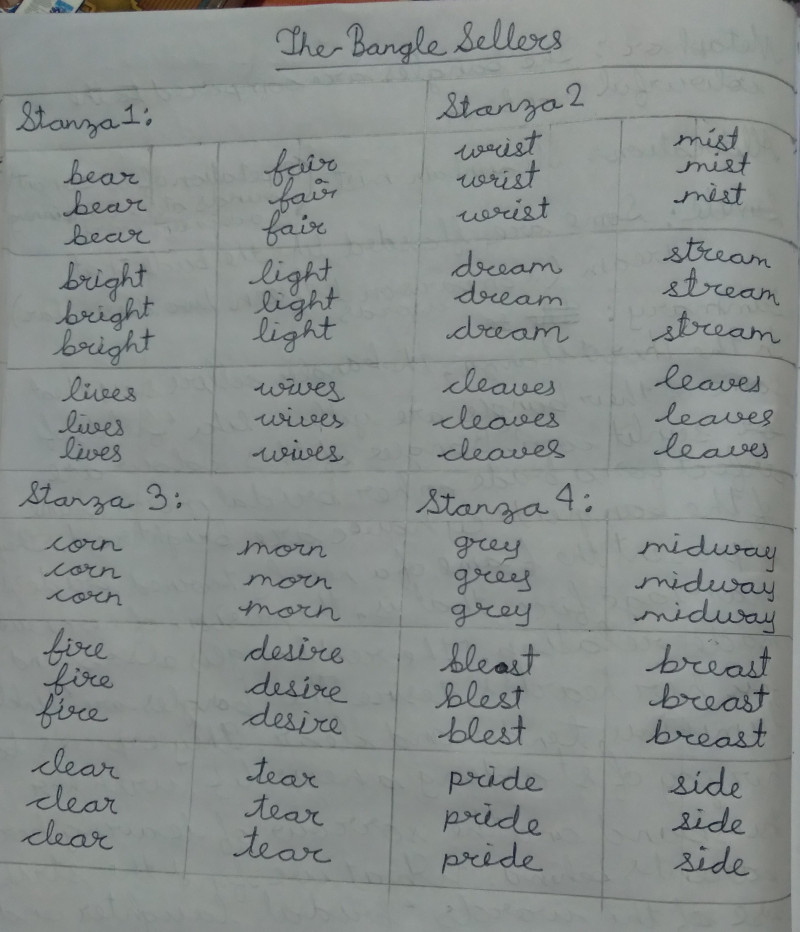 The Bangle Sellers
Stanza 1: Stanza 2
bear fair wrist mist
bear fair wrist mist
bear fair wrist mist
bright light dream stream
bright light dream stream
bright light dream stream
lives wives cleaves leaves
lives wives cleaves leaves
lives wives cleaves leaves
Stanza 3: Stanza 4:
corn morn grey midway
corn morn grey midway
corn morn grey midway
fire desire blest breast
fire desire blest breast
fire desire blest breast
clear tear pride side
clear tear pride side
clear tear pride side